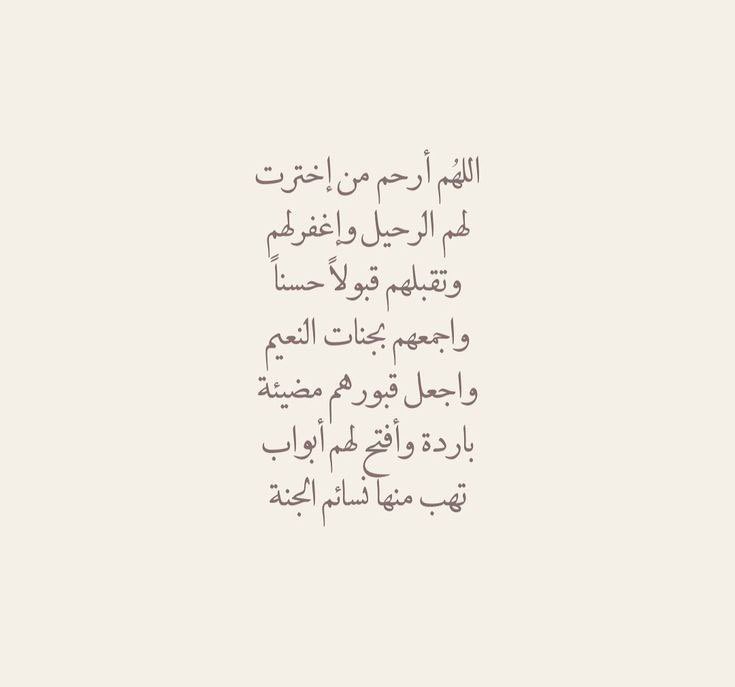 اللهُم أرحم من إخترت
لهم الرحيل وإغفرلهم
وتقبلهم قبولاً حسناً
واجمعهم بجنات النعيم
واجعل قبورهم مضيئة
باردة وأفتح لهم أبواب
تهب منها نسائم الجنة